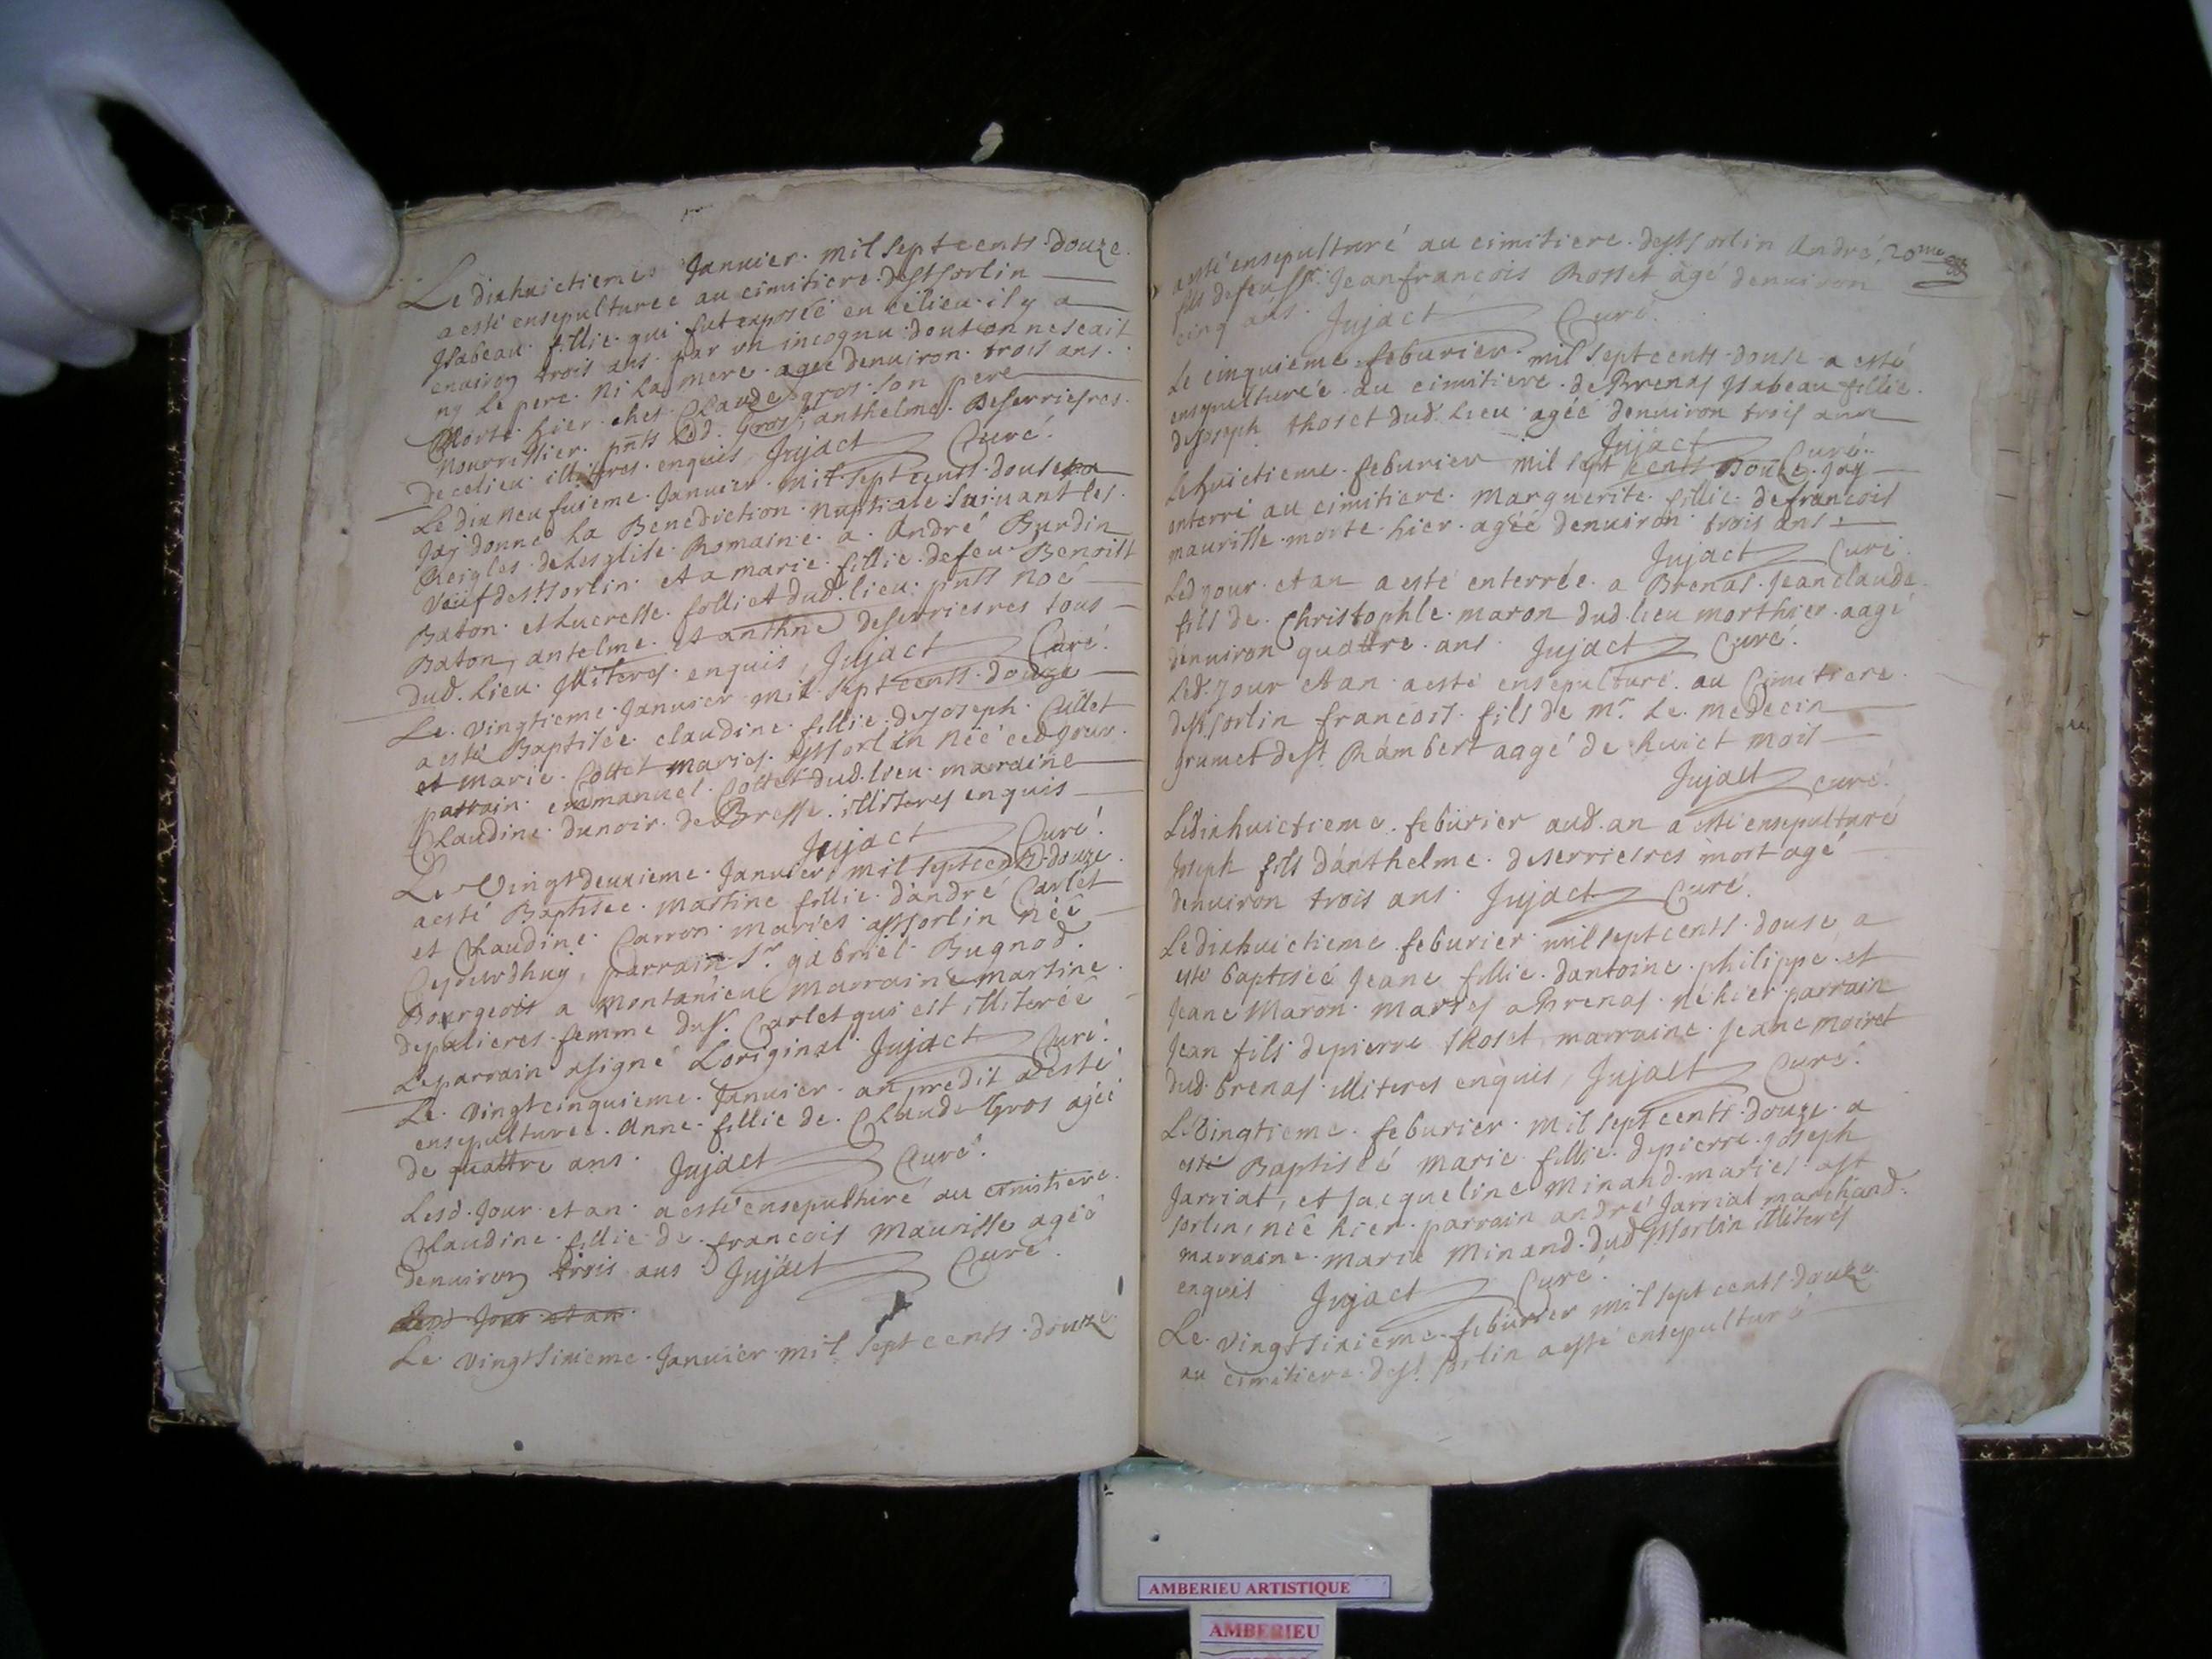 Le dixhuictieme Januier mil sept cents douze
a esté ensepulturee au cimitiere de st sorlin
Ysabeau fillie qui fut exposée en ce lieu il y a
enuiron trois ans par vn incognu dont on ne scait
ny le pere ni la mere agée denuiron trois ans
Morte hier ches Claude gros son pere
nourrissier pnts led. Gros, anthelme deserriesres
de ce lieu illiteres enquis Jujact Curé
Le dix neufuieme Januier mil sept cents douse
Jay donné la Benediction nuptiale suiuant les
Reigles de lesglise Romaine a André Burdin
veuf de st sorlin et a marie fillie de feu Benoist
Baton et lucresse folliet dud. lieu pnts noé
Baton, antelme et anthne deserriesres tous
dud. lieu Illiteres enquis, Jujact Curé
Le vingtieme Januier mil sept cents douze
a esté Baptisée claudine fillie de Joseph Cullet
et marie Collet maries a st sorlin née ced jour
parrain emmanuel Collet dud. lieu marraine
Claudine dunoir de Bresse illiteres enquis
Jujact Curé
Le Vingt deuxieme Januier mil sept cents douze
a esté Baptisée Martine fillie d'andré Carlet
et Claudine Carron mariés a st sorlin née
Ceyourdhuy, parrain Sr. gabriel Bugnod
Bourgeois a Montanieu marraine martine
depalieres femme du sr. Carlet qui est illiterée
Le parrain a signé Loriginal Jujact Curé
Le vingt cinquieme Januier an predit a esté
ensepulturee Anne fillie de Claude Gros agée
de quattre ans Jujact Curé
Lesd. Jour et an a esté ensepulturé au cimitiere
Claudine fillie de francois Maurisse agée
denuiron trois ans Jujact Curé
Lesd Jour et an
Le vingt sixieme Januier mil sept cents douze
a esté ensepulturé au cimitiere de st sorlin André 20me
fils de feu sr. Jean francois Rosset agé denuiron
cinq ans Jujact Curé
Le cinquieme feburier mil sept cents douse a esté
ensepulturée au cimitiere de Brenas ysabeau fillie
de Joseph thoset dud. lieu agée denuiron trois ans
Jujact Curé
Le huictieme feburier mil sept cents Douze Jay
enterré au cimitiere Marguerite fillie de francois
maurisse morte hier agéé denuiron trois ans
Jujact Curé
Led your et an a esté enterrée a Brenas Jean claude
fils de Christophle maron dud lieu mort hier aagé
denuiron quattre ans Jujact Curé
Led. your et an a esté ensepulturé au Cimitiere
de st sorlin francois fils de mr. Le medecin
grumet de st Rambert aagé de huict mois
Jujact curé
Le dixhuictieme feburier aud. an a esté ensepulturé
Joseph fils danthelme deserriesres mort agé
denuiron trois ans Jujact Curé
Le dixhuictieme feburier mil sept cents douse a
esté baptiséé Jeane fillie dantoine philippe et
Jeane Maron maries a Brenas né hier parrain
Jean fils de pierre thoset marraine Jeane moiret
dud. brenas illiteres enquis, Jujact Curé
Le Vingtieme feburier mil sept cents douze a
esté Baptisée Marie fillie de pierre Joseph
Jarriat, et Jacqueline Minand mariés a st
sorlin, neé hier parrain andré Jarriat marchand
marraine marie Minand dud st sorlin illiteres
enquis Jujact Curé
Le vingt sixieme feburier mil sept cents douze
au cimitiere de st sorlin a esté ensepulturé
AMBERIEU ARTISTIQUE
AMBERIEU